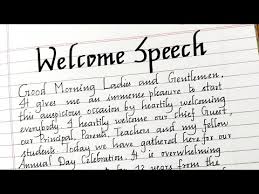 Welcome Speech
Good Morning Ladies and Gentlemen,
It gives me an immense pleasure to start
this auspicious occasion by heartily welcoming
everybody. I heartily welcome our chief Guest,
our Principal, Parents, Teachers and my fellow
students. Today we have gathered here for our
Annual Day Celebration. It is overwhelming
12 years from the